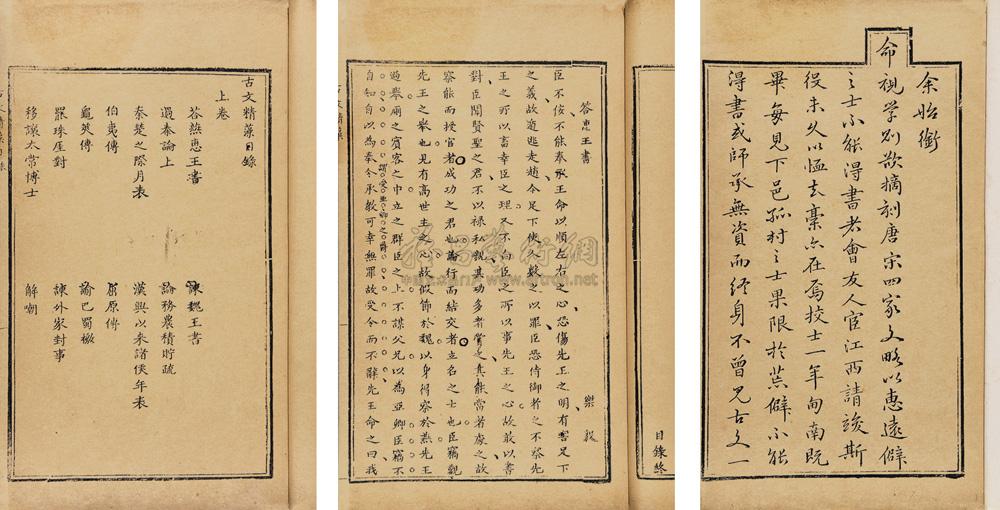 古文精藻目錄
上卷
答燕惠王書 諫魏王書
過秦論上 論務農積貯疏
秦楚之際月表 漢興以來諸侯年表
伯夷傳 屈原傳
龜筴傳 諭巴蜀檄
罷珠厓對 諫外家封事
移讓太常博士 解嘲
目錄終
答惠王書 樂毅
臣不佞不能奉承王命以順左右之心恐傷先王之明有害足下
之義故遁逃走趙今足下使人數之以罪臣恐侍御者之不察先
王之所以畜幸臣之理又不白臣之所以事先王之心故敢以書
對臣聞賢聖之君不以祿私親其功多者賞之其能當者處之故
察能而授官者成功之君也論行而結交者立名之士也臣竊觀
先王之舉也見有高世主之心故假節於魏以身得察於燕先王
過舉廁之賓客之中立之群臣之上不謀父兄以為亞卿臣竊不
自知自以為奉令承教可幸無罪故受令而不辭先王命之曰我
古文精藻
余始銜
命視學則欲摘刻唐宋四家文略以惠遠僻
之士不能得書者會友人官江西請竣斯
役未久以恤去藁亦在焉按士一年向南既
畢每見下邑孤村之士果限於荒僻不能
得書或師承無資而終身不曾見古文一